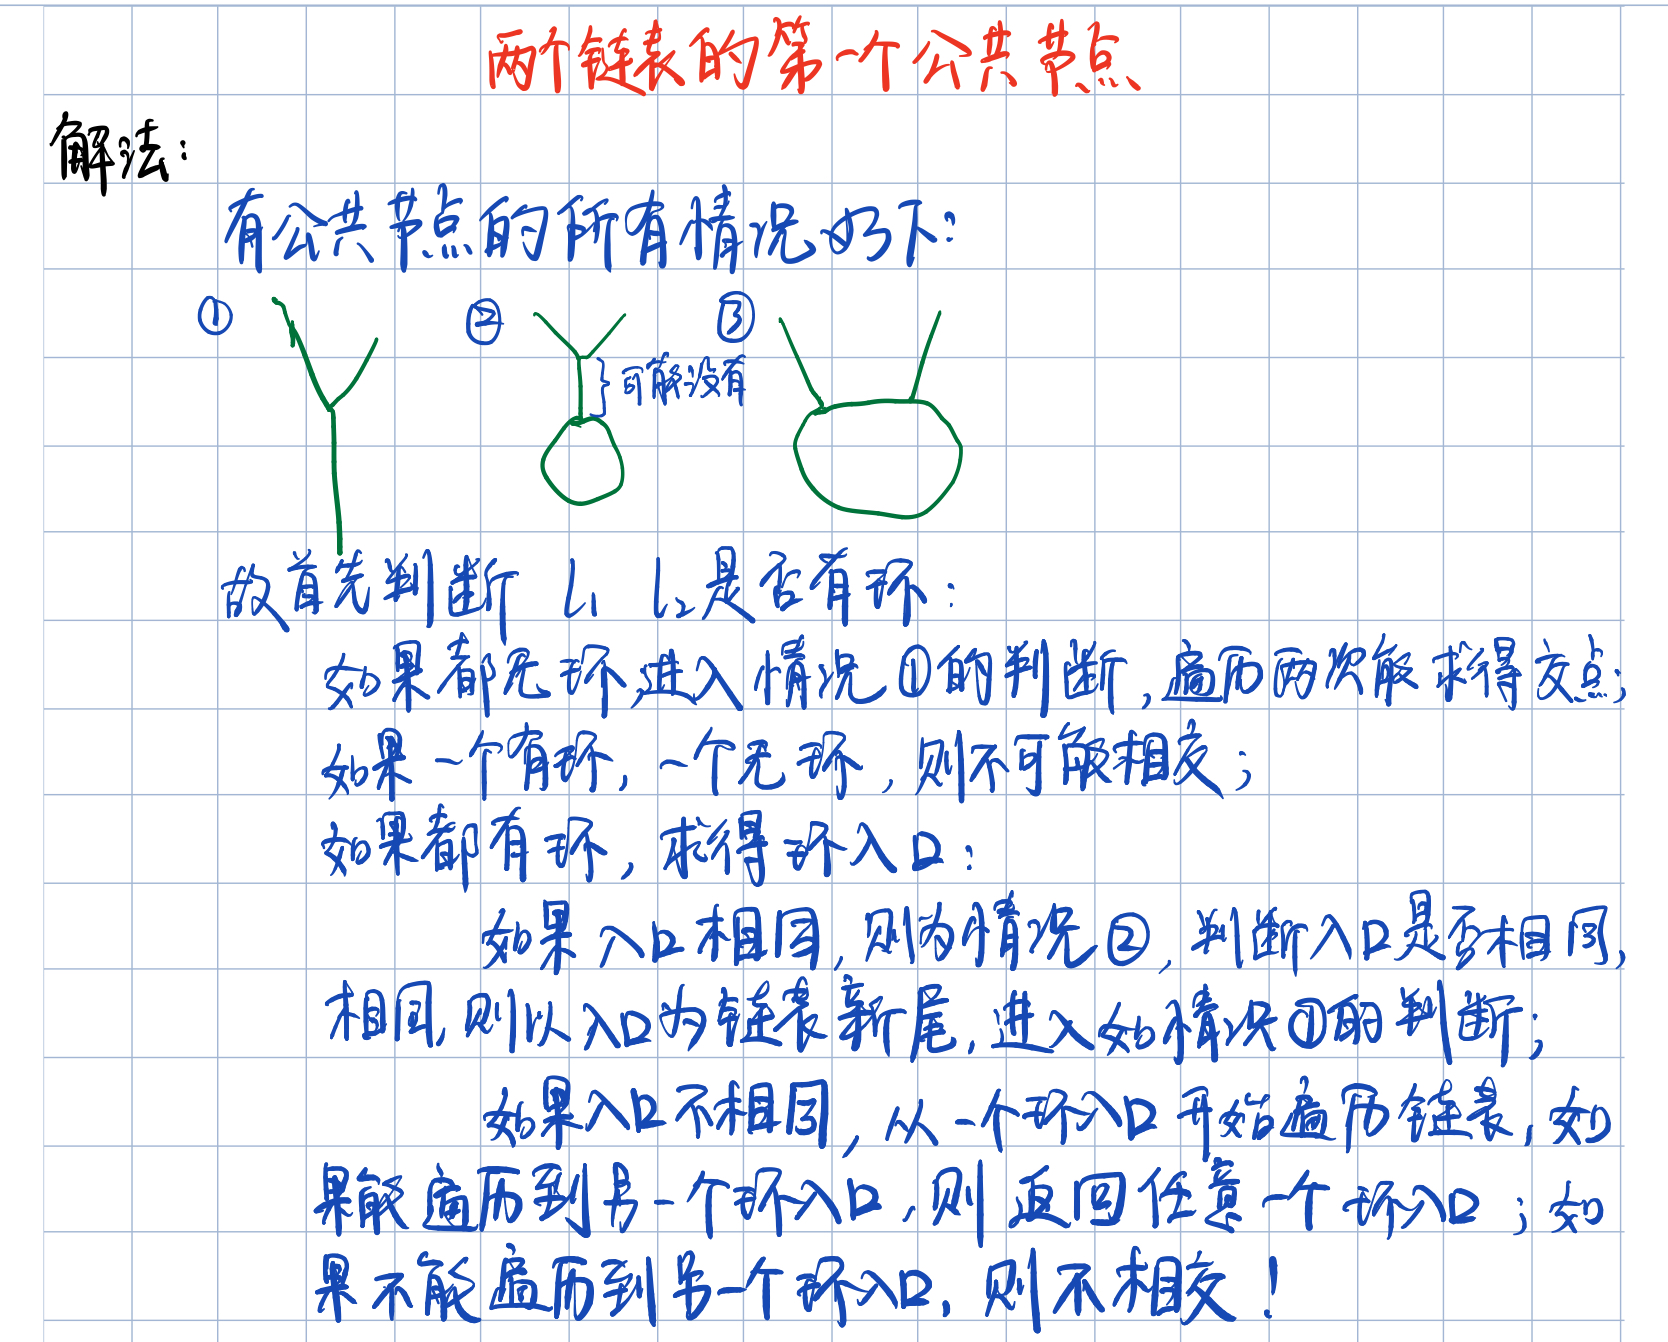 两个链表的第一个公共节点
解法：
有公共节点的所有情况如下：
① ② ③
可能没有
故首先判断 L₁ L₂是否有环：
如果都无环,进入情况①的判断,遍历两次能求得交点;
如果一个有环,一个无环,则不可能相交;
如果都有环,求得环入口:
如果入口相同,则为情况②,判断入口是否相同,
相同,则以入口为链表新尾,进入如情况①的判断;
如果入口不相同,从一个环入口开始遍历链表,如
果能遍历到另一个环入口,则返回任意一个环入口;如
果不能遍历到另一个环入口,则不相交!